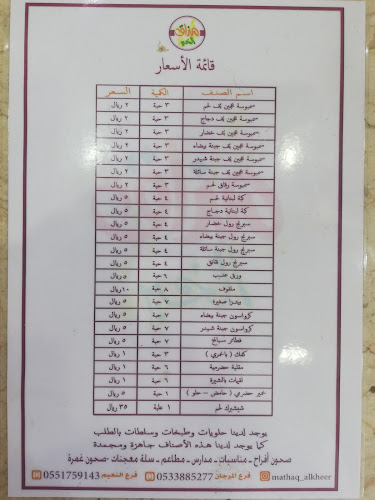 مذاق الخير
قائمة الأسعار
اسم الصنف الكمية السعر
سمبوسة عجين بف لحم ٣ حبة ٢ ريال
سمبوسة عجين بف دجاج ٣ حبة ٢ ريال
سمبوسة عجين بف خضار ٣ حبة ٢ ريال
سمبوسة عجين بف جبنة بيضاء ٣ حبة ٢ ريال
سمبوسة عجين بف جبنة شيدر ٣ حبة ٢ ريال
سمبوسة عجين بف جبنة سائلة ٣ حبة ٢ ريال
سمبوسة رقائق لحم ٣ حبة ٢ ريال
كبة لبنانية لحم ٤ حبة ٥ ريال
كبة لبنانية دجاج ٤ حبة ٥ ريال
سبرنج رول خضار ٤ حبة ٥ ريال
سبرنج رول جبنة بيضاء ٤ حبة ٥ ريال
سبرنج رول جبنة سائلة ٤ حبة ٥ ريال
سبرنج رول نقانق ٤ حبة ٥ ريال
ورق عنب ٦ حبة ٥ ريال
ملفوف ٨ حبة ١٠ ريال
بيتزا صغيرة ٧ حبة ٥ ريال
كرواسون جبنة بيضاء ٧ حبة ٥ ريال
كرواسون جبنة شيدر ٧ حبة ٥ ريال
فطائر سبانخ ٧ حبة ٥ ريال
كعك ( باخمري ) ٣ حبة ١ ريال
مقلية حضرمية ٦ حبة ١ ريال
لقيات بالشيرة ٦ حبة ١ ريال
خمير حضرمي ( حامض - حلو ) ١ حبة ٥ ريال
شيشبرك لحم ١ علبة ٣٥ ريال
يوجد لدينا حلويات وطبخات وسلطات بالطلب
كما يوجد لدينا هذه الأصناف جاهزة ومجمدة
صحون أفراح - مناسبات - مدارس - مطاعم - سلة معجنات - صحون غمرة
0551759143 فرع النعيم 0533885277 فرع المرجان mathaq_alkheer